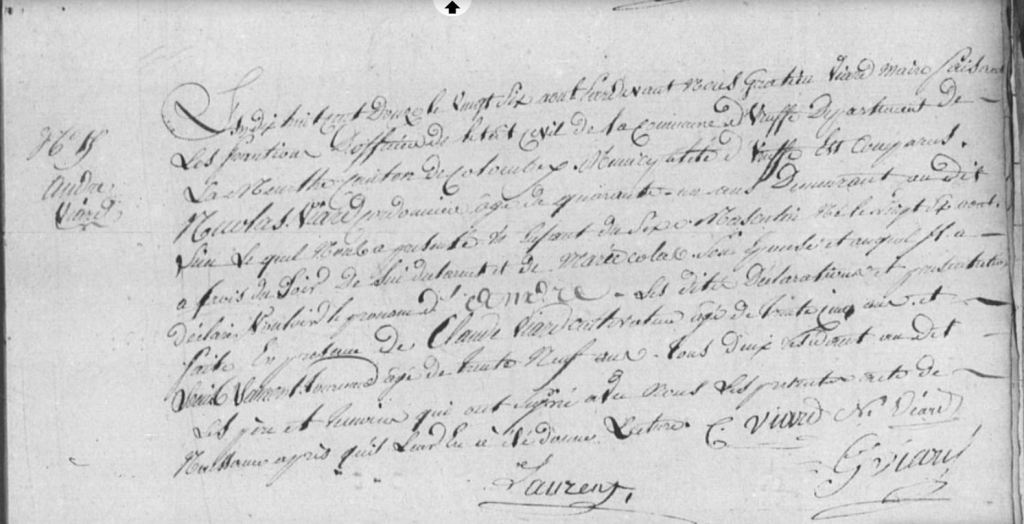 N° 15
André
Viard
L'an dix huit cent Douze le Vingt Six aout Pardevant Nous Gratien Viard maire faisant
Les fonctions D'officier de letat Civil de la Commune d Vruffe Departement de
La Meurthe Canton de Colombey Municipalité d Vruffe Est Comparus
Nicolas Viard age de quarante-un ans Demeurant au dit
Lieu Le quel Nous a presenté un Enfant du Sexe Masculin Né le vingt Six aout
a trois du Soir de Lui declarant et de Marie colas Son Epouse et auquel Il a
declaré Vouloir le prenom d'André Les dite Declaration et presentation
faite En presence de Claude Viard cultivateur agé de trente cinq ans et
Louis Laurent agé de trente Neuf ans tous deux residant au dit
Les père et temoins qui ont Signé avec Nous Les present acte de
Naissance apres quil Leur En a été donné Lecture C Viard N. Viard
Laurent G Viard